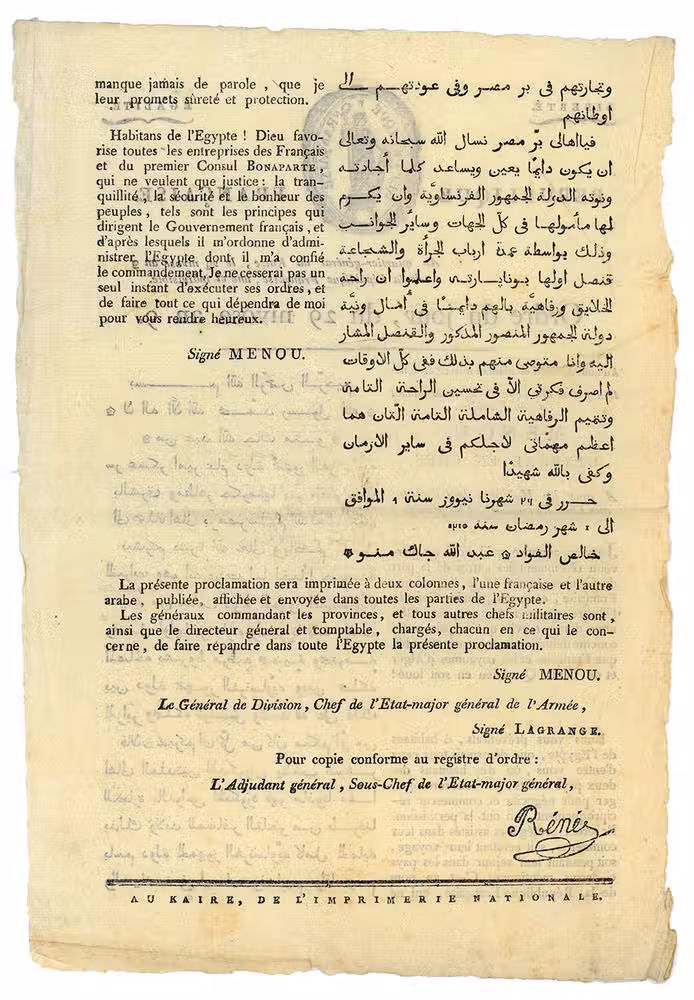 manque jamais de parole , que je
leur promets sûreté et protection.
Habitans de l'Egypte ! Dieu favo-
rise toutes les entreprises des Français
et du premier Consul BONAPARTE ,
qui ne veulent que justice : la tran-
quillité , la sécurité et le bonheur des
peuples , tels sont les principes qui
dirigent le Gouvernement français , et
d'après lesquels il m'ordonne d'admi-
nistrer l'Egypte dont il m'a confié
le commandement. Je ne cesserai pas un
seul instant d'exécuter ses ordres , et
de faire tout ce qui dépendra de moi
pour vous rendre heureux.
Signé MENOU.
وتجارتهم فى بر مصر وفى عودتهم الى
اوطانهم
فيااهالى برّ مصر نسال الله سبحانه وتعالى
ان يكون دايمًا يعين ويساعد كلما
الدولة للجمهور الفرنساويّة وان يكرم
لها مأمولها فى كلّ الجهات وساير الجوانب
وذلك بواسطة ارباب الجرأة والشجاعة
قنصل اولها بونابارته واعلموا ان راحة
الخلايق ورفاهيّة بالهم دايمًا فى
دولة للجمهور المنصور المذكور والقنصل المشار
اليه وانا متوصى منهم بذلك ففى كلّ الاوقات
لم اصرف فكرتى الاّ فى تحسين الراحة التامة
وتتميم الرفاهية الشاملة التامة اللتان هما
اعظم مهمّاتى لاجلكم فى ساير الازمان
وكفى بالله شهيدًا
حرر فى ٢٩ شهرنا نيووز سنة ٩ الموافق
الى شهر رمضان سنه ١٢١٥
خالص الفواد ۞ عبد الله جاك منو ۞
La présente proclamation sera imprimée à deux colonnes , l'une française et l'autre
arabe , publiée, affichée et envoyée dans toutes les parties de l'Egypte.
Les généraux commandant les provinces, et tous autres chefs militaires sont ,
ainsi que le directeur général et comptable , chargés, chacun en ce qui le con-
cerne , de faire répandre dans toute l'Egypte la présente proclamation.
Signé MENOU.
Le Général de Division , Chef de l'Etat-major général de l'Armée,
Signé LAGRANGE.
Pour copie conforme au registre d'ordre :
L'Adjudant général , Sous-Chef de l'Etat-major général,
Réné
AU KAIRE, DE L'IMPRIMERIE NATIONALE.